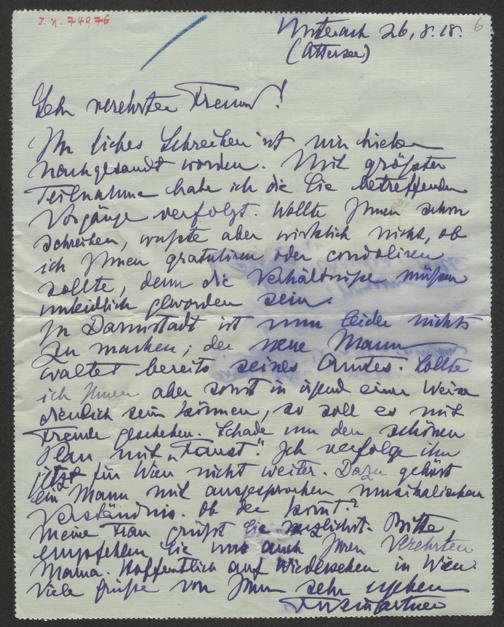 J. N. 74976
6
Unterach 26. 8. 18.
(Attersee)
Sehr verehrter Freund!
Ihr liebes Schreiben ist mir hieher
nachgesandt worden. Mit größter
Teilnahme habe ich die Sie betreffenden
Vorgänge verfolgt. Wollte Ihnen schon
schreiben, wußte aber wirklich nicht, ob
ich Ihnen gratuliren oder condoliren
sollte, denn die Verhältniße müßen
unleidlich geworden sein.
In Darmstadt ist nun leider nichts
zu machen; der neue Mann
waltet bereits seines Amtes. Sollte
ich Ihnen aber sonst in irgend einer Weise
dienlich sein können, so soll es mit
Freude geschehen. Schade um den schönen
Plan mit „Faust“. Ich verfolge ihn
jetzt für Wien nicht weiter. Dazu gehört
ein Mann mit ausgesprochen musikalischem
Verständnis. Ob der kommt?
Meine Frau grüßt Sie herzlichst. Bitte
empfehlen Sie uns auch Ihrer verehrten
Mama. Hoffentlich auf Wiedersehen in Wien.
Viele Grüße von Ihrem sehr ergebenen
Weingartner